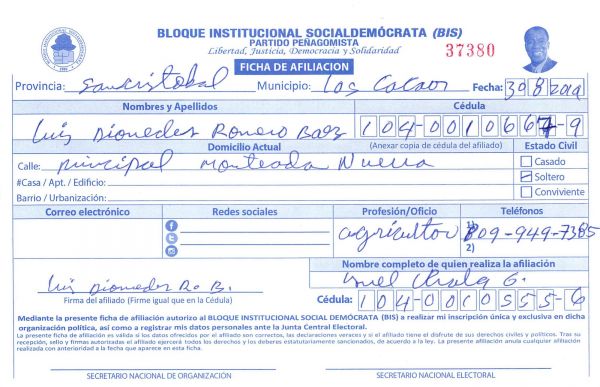 BLOQUE INSTITUCIONAL SOCIALDEMÓCRATA (BIS)
PARTIDO PEÑAGOMISTA
Libertad, Justicia, Democracia y Solidaridad
37380
FICHA DE AFILIACION
Provincia: San Cristobal Municipio: Los Cacaos Fecha: 30 8 2019
Nombres y Apellidos Cédula
Luis Diomedes Romero Baez 104-0010667-9
Domicilio Actual (Anexar copia de cédula del afiliado) Estado Civil
Calle: principal Monteada Nueva Casado
#Casa / Apt. / Edificio: Soltero
Barrio / Urbanización: Conviviente
Correo electrónico Redes sociales Profesión/Oficio Teléfonos
agricultor 1) 809-949-7385
2)
Nombre completo de quien realiza la afiliación
Luis Diomedes Ro B.
Firma del afiliado (Firme igual que en la Cédula) Cédula: 104-0010555-6
Mediante la presente ficha de afiliación autorizo al BLOQUE INSTITUCIONAL SOCIAL DEMÓCRATA (BIS) a realizar mi inscripción única y exclusiva en dicha
organización política, así como a registrar mis datos personales ante la Junta Central Electoral.
La presente ficha de afiliación es valida si los datos ofrecidos por el afiliado son correctos, las declaraciones veraces y si el afiliado tiene el disfrute de sus derechos civiles y políticos. Tras su
recepción, sello y firmas autorizadas el afiliado ejercerá todos los derechos y los deberes estatutariamente sancionados, de acuerdo a la ley. La presente afiliación anula cualquier afiliación
realizada con anterioridad a la fecha que aparece en esta ficha.
SECRETARIO NACIONAL DE ORGANIZACIÓN SECRETARIO NACIONAL ELECTORAL